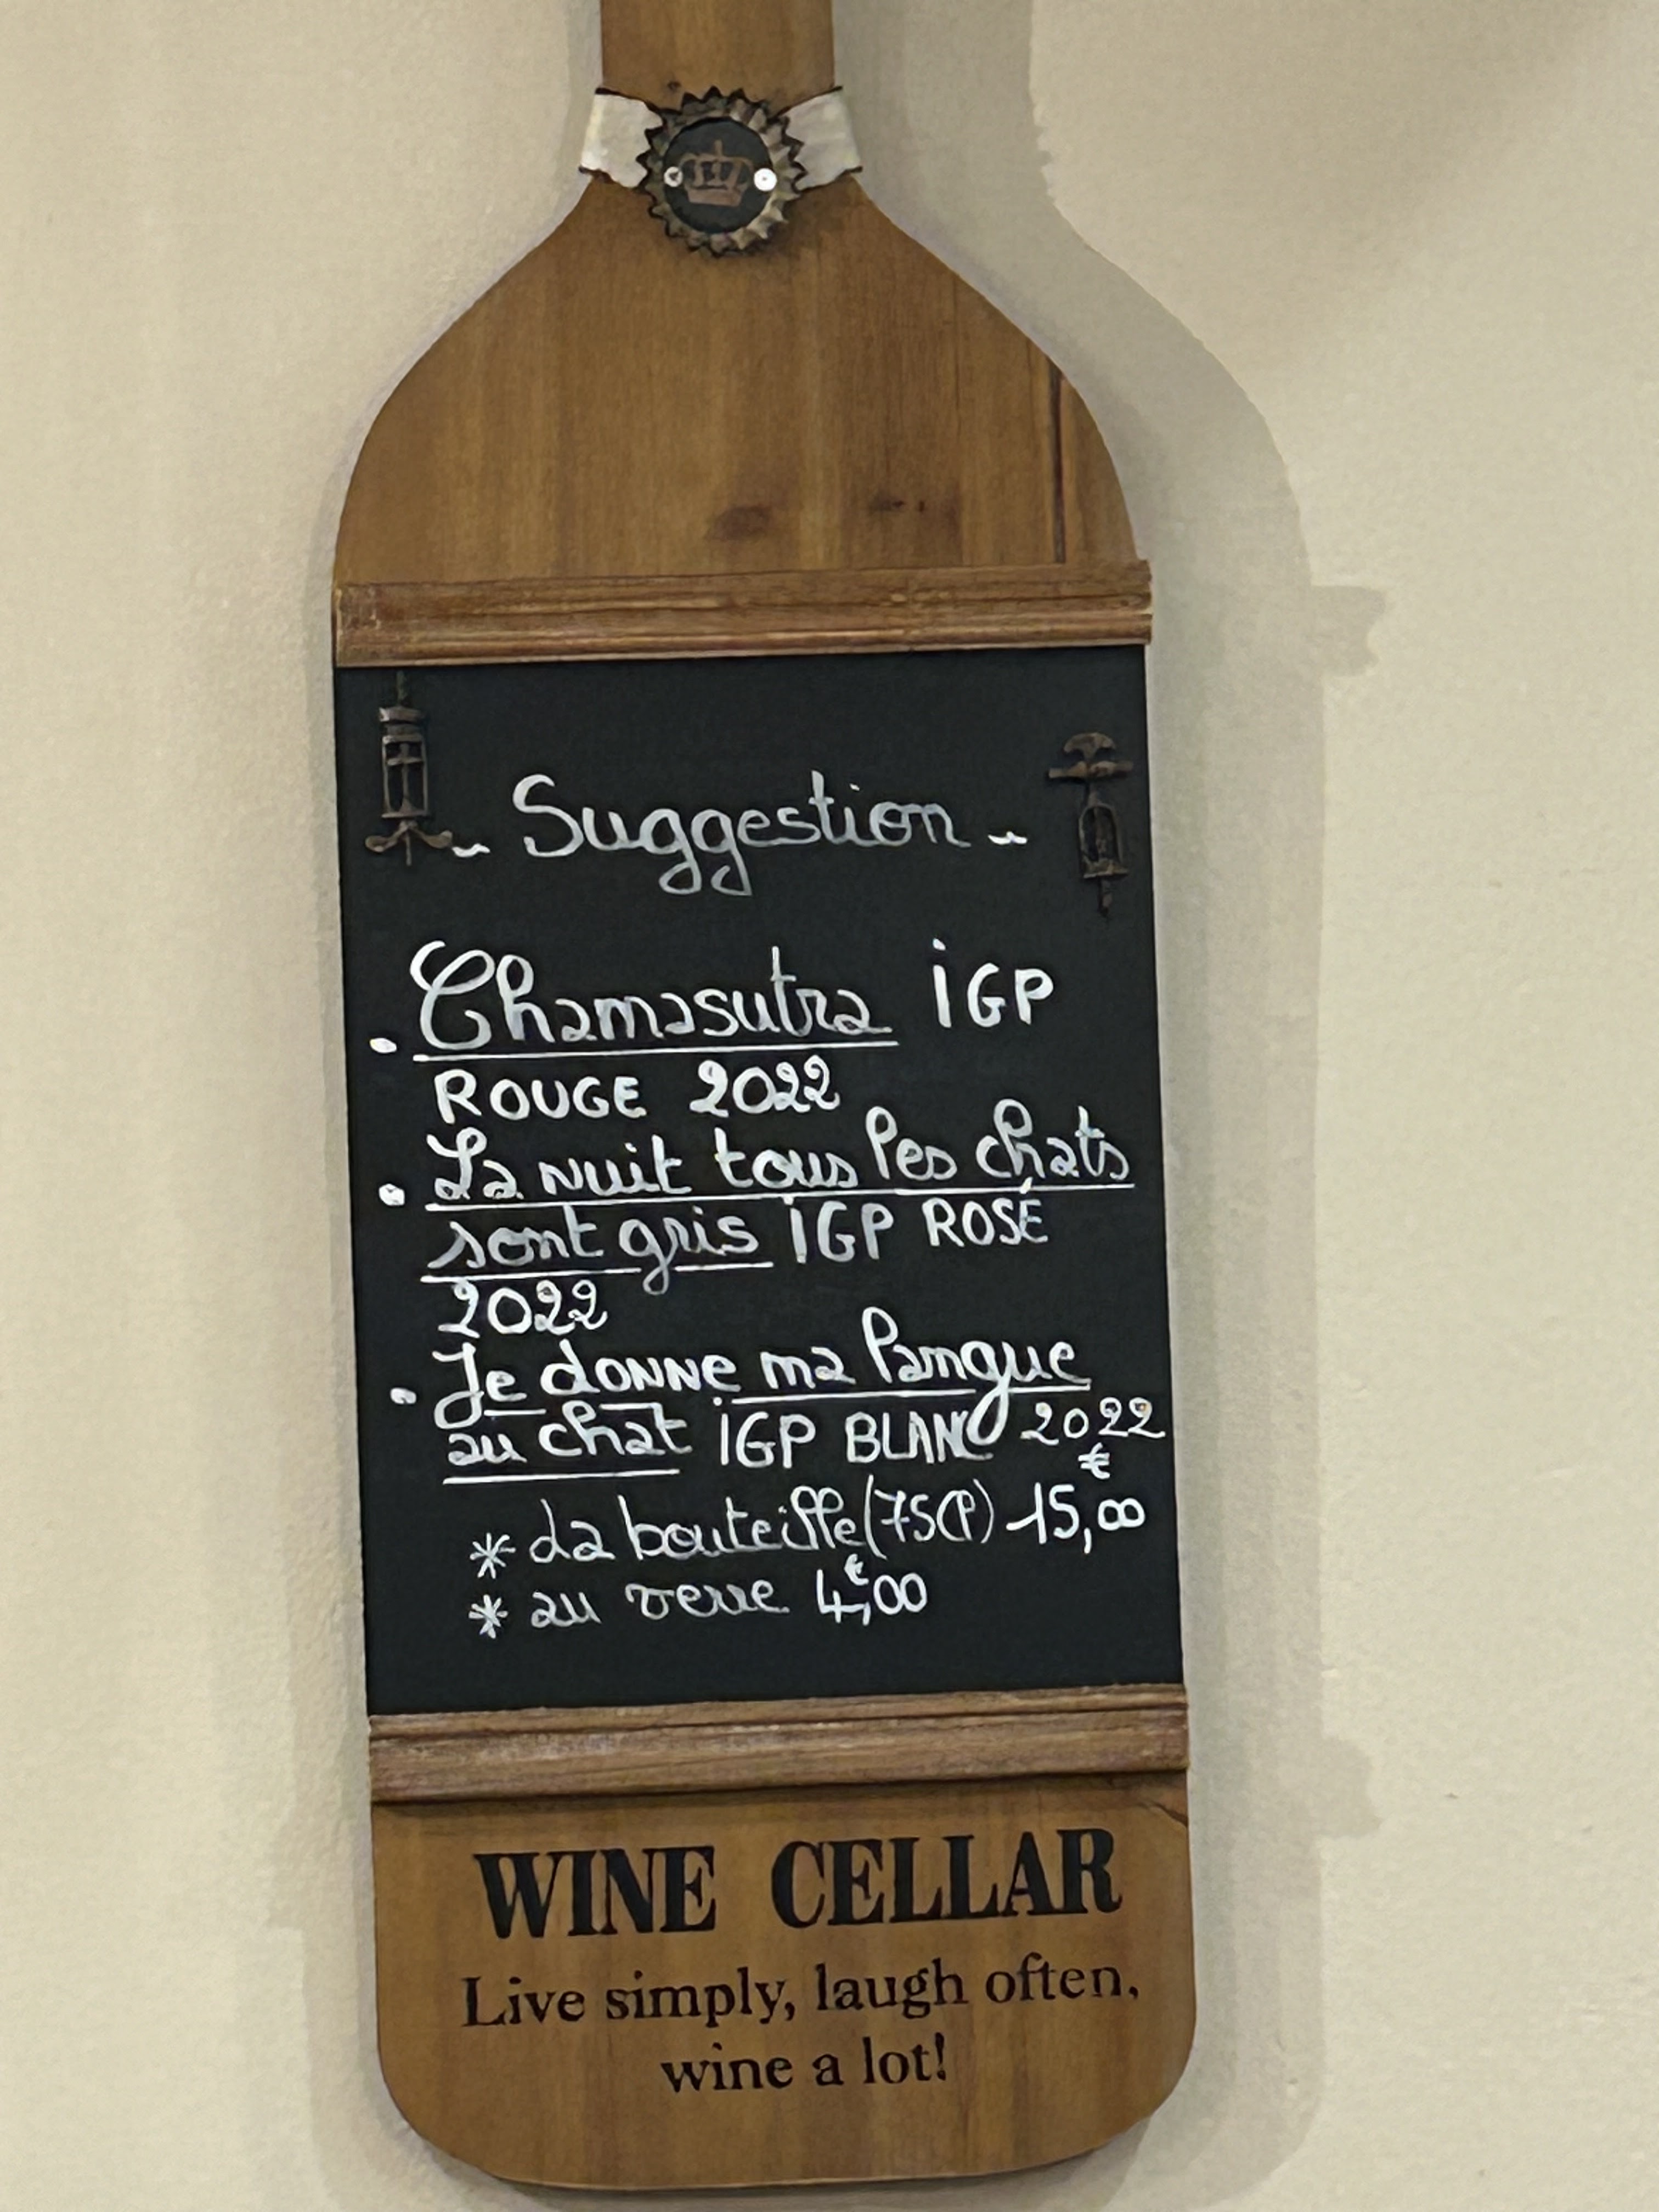 ~ Suggestion ~
• Chamasutra IGP
ROUGE 2022
• La nuit tous les chats
sont gris IGP ROSÉ
2022
• Je donne ma langue
au chat IGP BLANC 2022
* La bouteille (75cl) 15,00 €
* au verre 4,00 €
WINE CELLAR
Live simply, laugh often,
wine a lot!